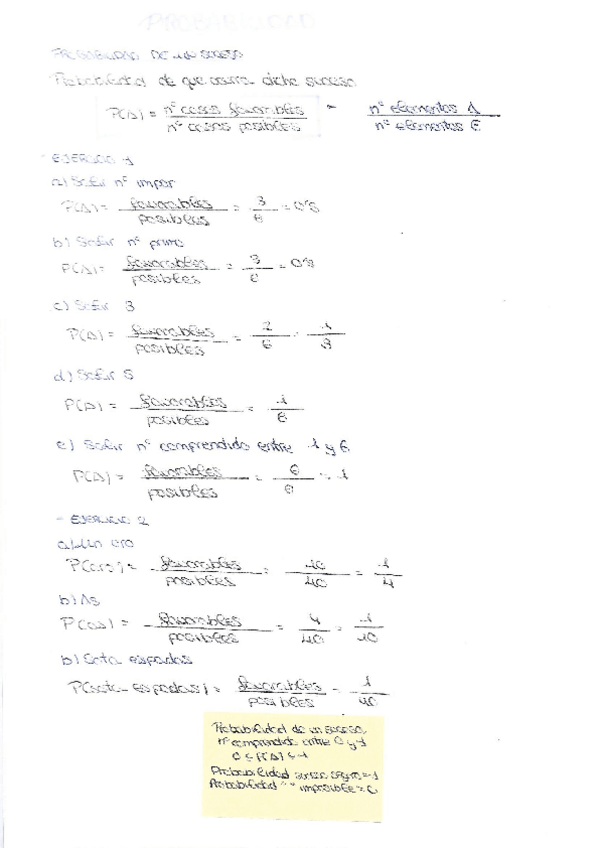 PROBABILIDAD
PROBABILIDAD DE UN SUCESO
Probabilidad de que ocurra dicho suceso.
P(A) = nº casos favorables / nº casos posibles = nº elementos A / nº elementos E
- EJERCICIO 1
a) Salir nº impar
P(A) = favorables / posibles = 3 / 6 = 0'5
b) Salir nº primo
P(A) = favorables / posibles = 3 / 6 = 0'5
c) Salir 3
P(A) = favorables / posibles = 2 / 6 = 1 / 3
d) Salir 5
P(A) = favorables / posibles = 1 / 6
e) Salir nº comprendido entre 1 y 6
P(A) = favorables / posibles = 6 / 6 = 1
- EJERCICIO 2
a) Un oro
P(oro) = favorables / posibles = 10 / 40 = 1 / 4
b) As
P(as) = favorables / posibles = 4 / 40 = 1 / 10
b) Sota espadas
P(sota espadas) = favorables / posibles = 1 / 40
Probabilidad de un suceso,
nº comprendido entre 0 y 1
0 ≤ P(A) ≤ 1
Probabilidad suceso seguro = 1
Probabilidad " " imposible = 0